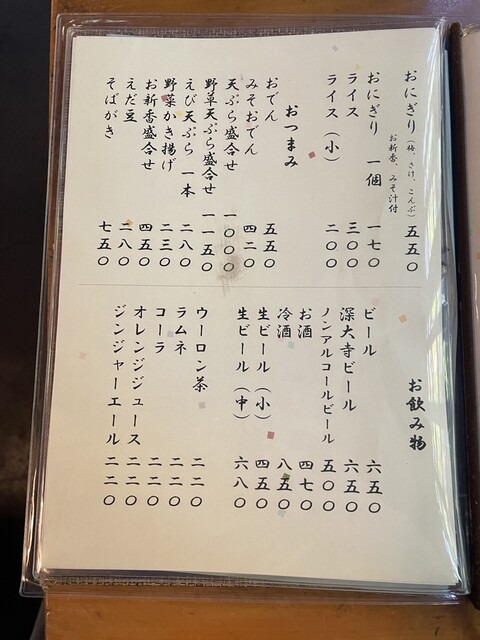 おにぎり（梅、さけ、こんぶ） 五五〇
お新香、みそ汁付
おにぎり 一個 一七〇
ライス 三〇〇
ライス（小） 二〇〇
おつまみ
おでん 五五〇
みそおでん 四二〇
天ぷら盛合せ 一〇〇〇
野草天ぷら盛合せ 一一五〇
えび天ぷら 一本 二八〇
野菜かき揚げ 二三〇
お新香盛合せ 四五〇
えだ豆 二八〇
そばがき 七五〇
お飲み物
ビール 六五〇
深大寺ビール 六五〇
ノンアルコールビール 五〇〇
お酒 四七〇
冷酒 八五〇
生ビール（小） 四五〇
生ビール（中） 六八〇
ウーロン茶 二二〇
ラムネ 二二〇
コーラ 二二〇
オレンジジュース 二二〇
ジンジャーエール 二二〇